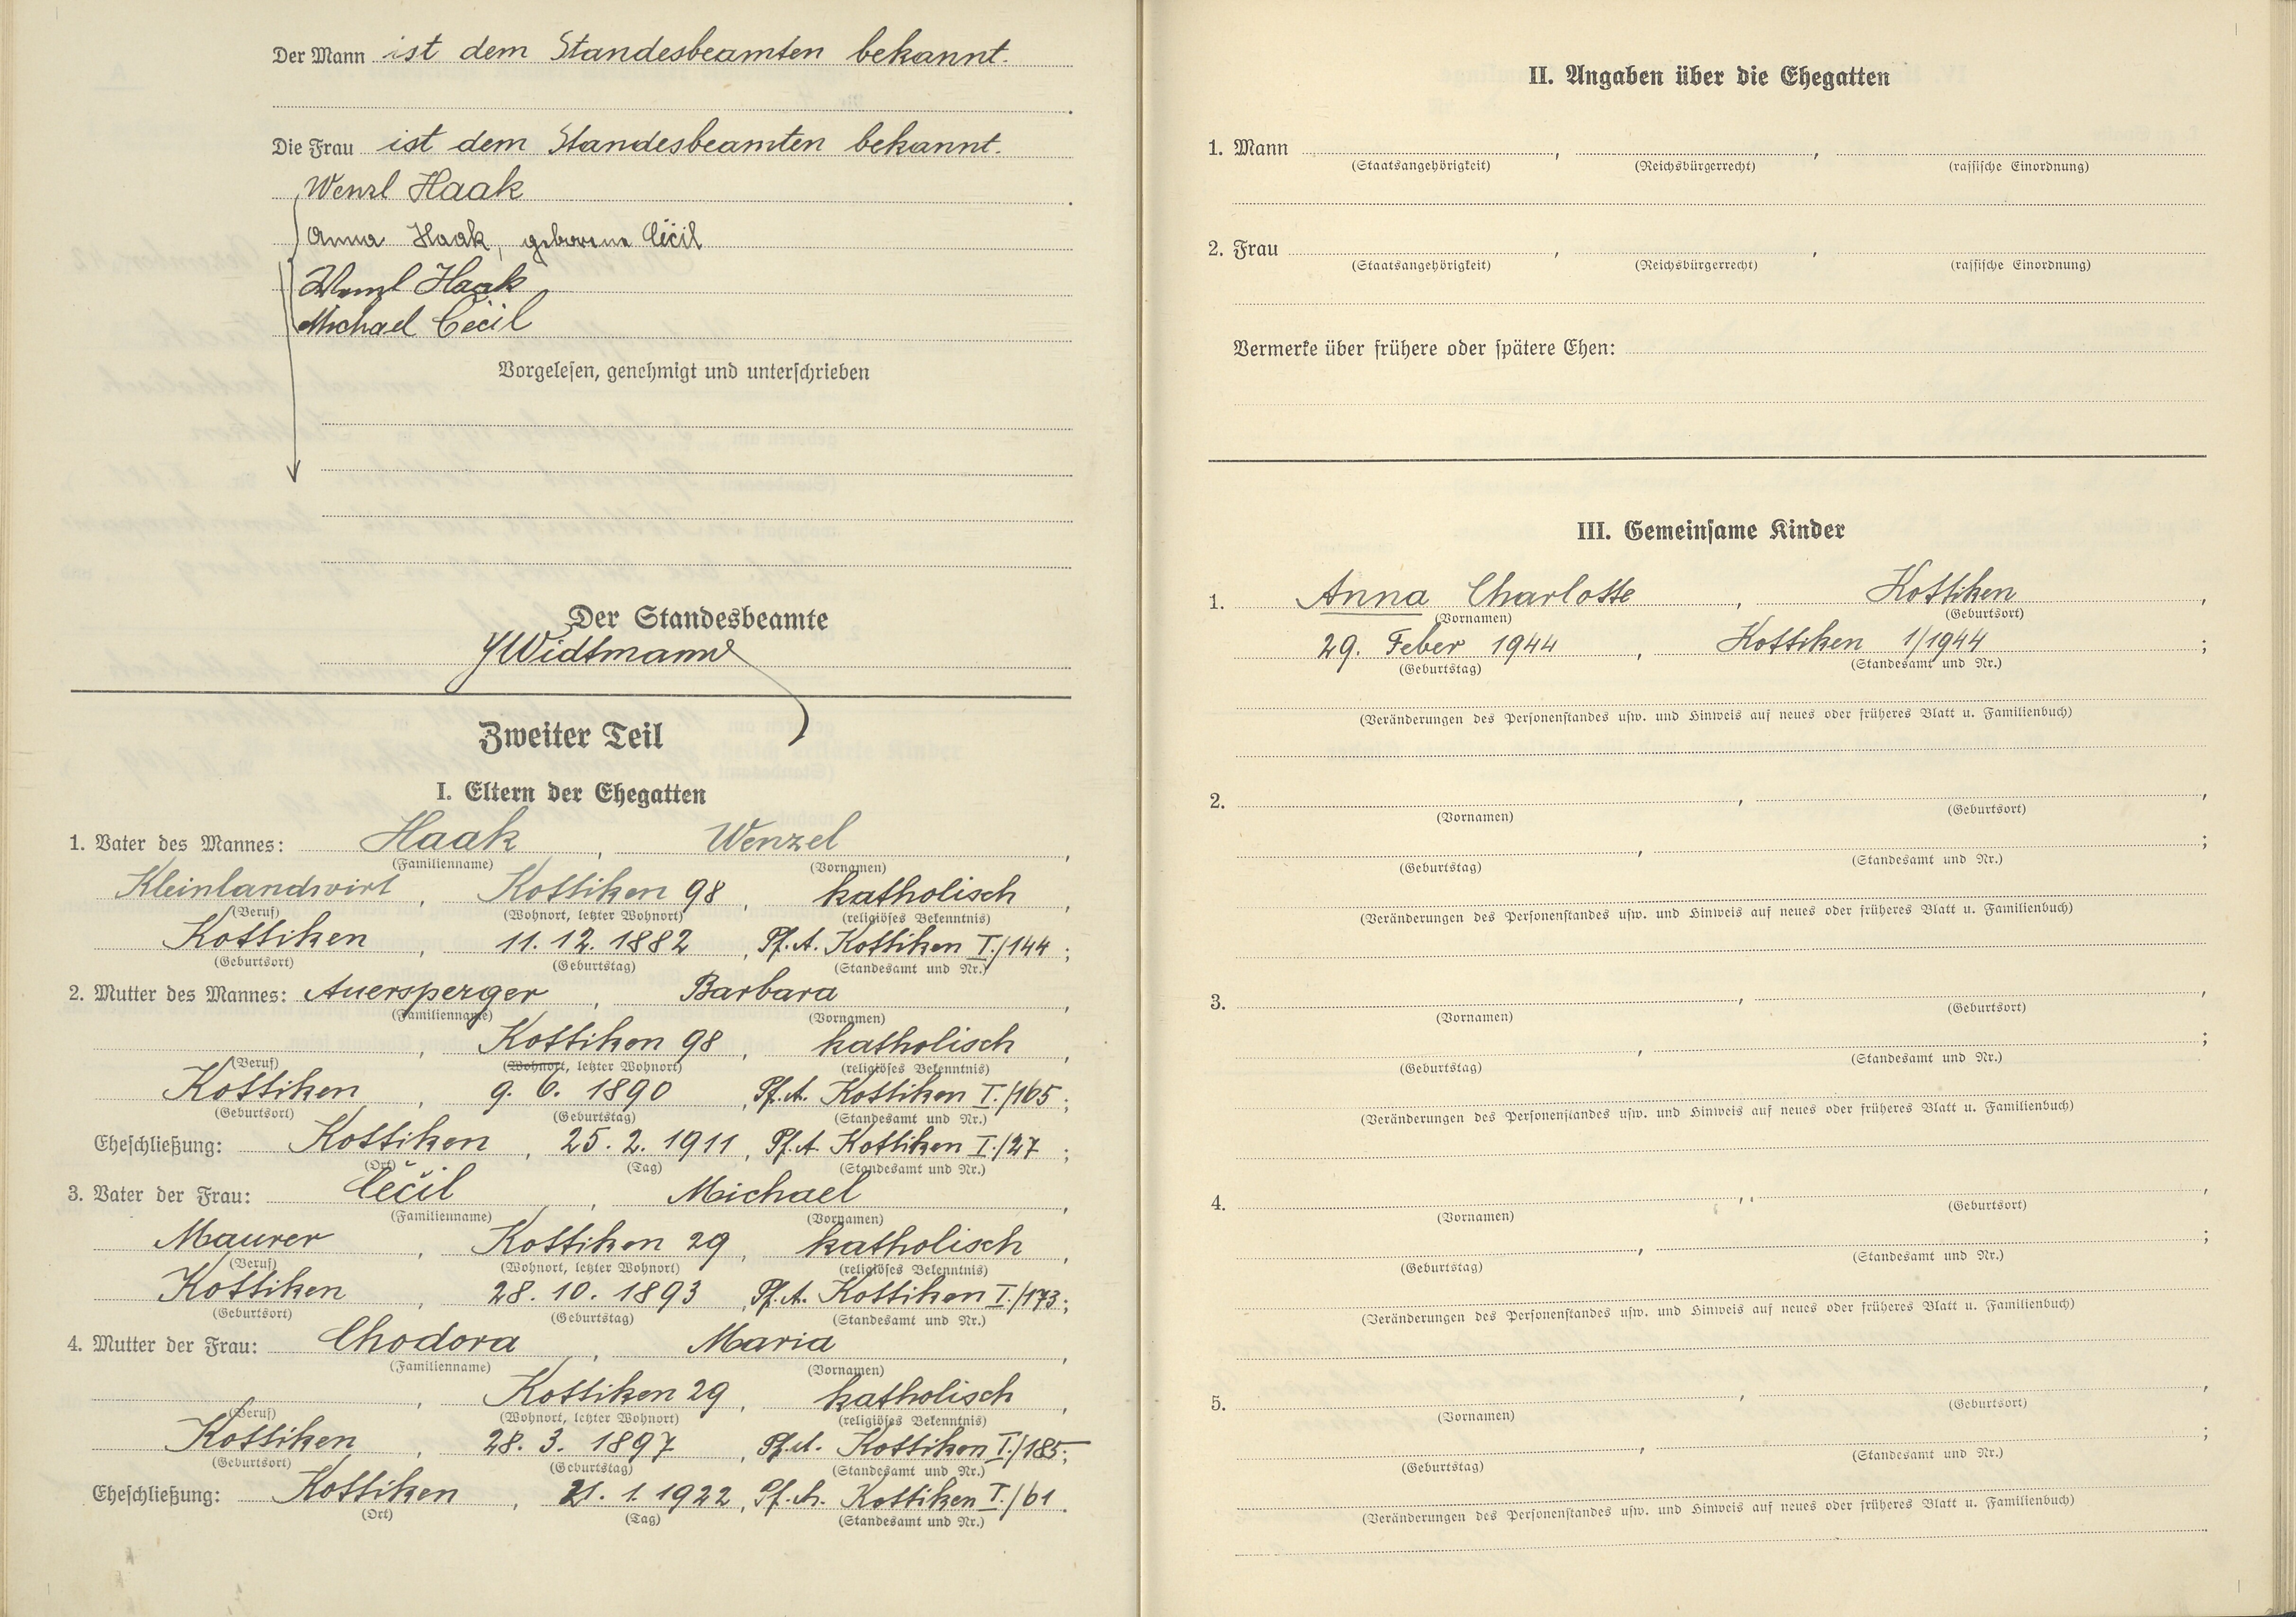 Der Mann ist dem Standesbeamten bekannt.
Die Frau ist dem Standesbeamten bekannt.
Wenzl Haak
Anna Haak, geborene Čečil
Wenzl Haak
Michael Čečil
Vorgelesen, genehmigt und unterschrieben
Der Standesbeamte
Widtmann
Zweiter Teil
I. Eltern der Ehegatten
1. Vater des Mannes: Haak, Wenzel,
(Familienname) (Vornamen)
Kleinlandwirt, Kottiken 98, katholisch,
(Beruf) (Wohnort, letzter Wohnort) (religiöses Bekenntnis)
Kottiken, 11. 12. 1882, Pf. A. Kottiken I./144;
(Geburtsort) (Geburtstag) (Standesamt und Nr.)
2. Mutter des Mannes: Auersperger, Barbara,
(Familienname) (Vornamen)
, Kottiken 98, katholisch,
(Beruf) (Wohnort, letzter Wohnort) (religiöses Bekenntnis)
Kottiken, 9. 6. 1890, Pf. A. Kottiken I./165;
(Geburtsort) (Geburtstag) (Standesamt und Nr.)
Eheschließung: Kottiken, 25. 2. 1911, Pf. A. Kottiken I./27;
(Ort) (Tag) (Standesamt und Nr.)
3. Vater der Frau: Čečil, Michael,
(Familienname) (Vornamen)
Maurer, Kottiken 29, katholisch,
(Beruf) (Wohnort, letzter Wohnort) (religiöses Bekenntnis)
Kottiken, 28. 10. 1893, Pf. A. Kottiken I./173;
(Geburtsort) (Geburtstag) (Standesamt und Nr.)
4. Mutter der Frau: Chodora, Maria,
(Familienname) (Vornamen)
, Kottiken 29, katholisch,
(Beruf) (Wohnort, letzter Wohnort) (religiöses Bekenntnis)
Kottiken, 28. 3. 1897, Pf. A. Kottiken I./185;
(Geburtsort) (Geburtstag) (Standesamt und Nr.)
Eheschließung: Kottiken, 21. 1. 1922, Pf. A. Kottiken I./61.
(Ort) (Tag) (Standesamt und Nr.)
II. Angaben über die Ehegatten
1. Mann , ,
(Staatsangehörigkeit) (Reichsbürgerrecht) (rassische Einordnung)
2. Frau , ,
(Staatsangehörigkeit) (Reichsbürgerrecht) (rassische Einordnung)
Vermerke über frühere oder spätere Ehen:
III. Gemeinsame Kinder
1. Anna Charlotte, Kottiken,
(Vornamen) (Geburtsort)
29. Feber 1944, Kottiken 1/1944;
(Geburtstag) (Standesamt und Nr.)
(Veränderungen des Personenstandes usw. und Hinweis auf neues oder früheres Blatt u. Familienbuch)
2. , ,
(Vornamen) (Geburtsort)
, ;
(Geburtstag) (Standesamt und Nr.)
(Veränderungen des Personenstandes usw. und Hinweis auf neues oder früheres Blatt u. Familienbuch)
3. , ,
(Vornamen) (Geburtsort)
, ;
(Geburtstag) (Standesamt und Nr.)
(Veränderungen des Personenstandes usw. und Hinweis auf neues oder früheres Blatt u. Familienbuch)
4. , ,
(Vornamen) (Geburtsort)
, ;
(Geburtstag) (Standesamt und Nr.)
(Veränderungen des Personenstandes usw. und Hinweis auf neues oder früheres Blatt u. Familienbuch)
5. , ,
(Vornamen) (Geburtsort)
, ;
(Geburtstag) (Standesamt und Nr.)
(Veränderungen des Personenstandes usw. und Hinweis auf neues oder früheres Blatt u. Familienbuch)